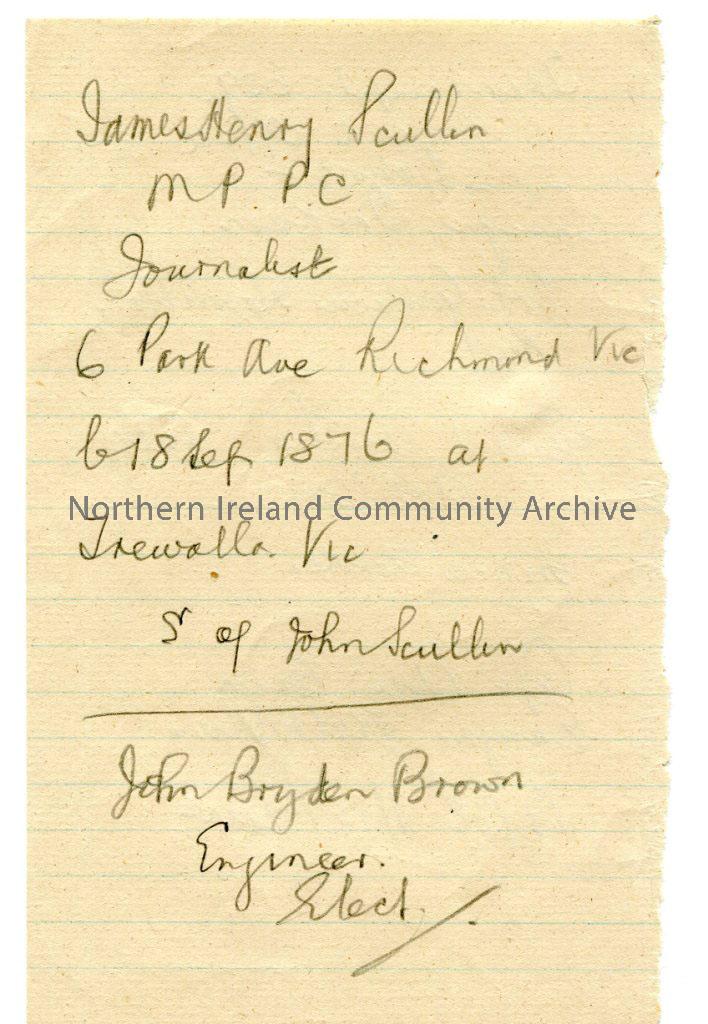 James Henry Scullin
MP P.C
Journalist
6 Park Ave Richmond Vic
b 18 Sep 1876 at
Northern Ireland Community Archive
Trewalla. Vic
S of John Scullin
John Bryden Brown
Engineer.
Elect.